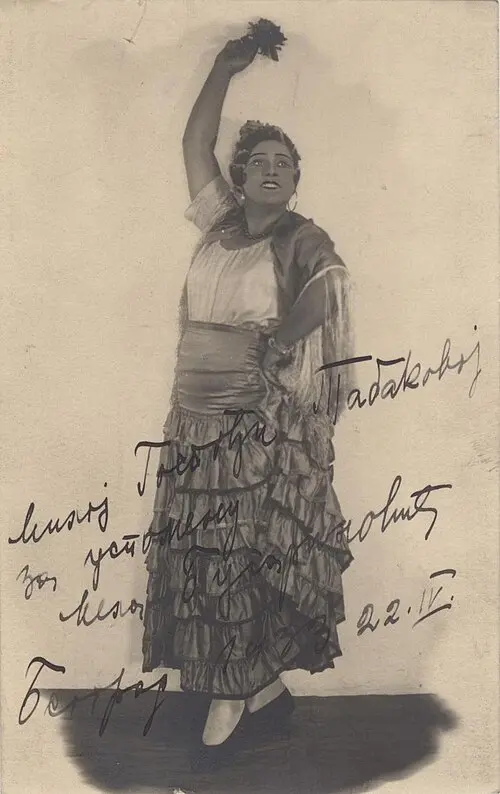 Милој Госпођи Табаковој
за успомену
Мела Бугариновић
Београд 1933 22. IV.